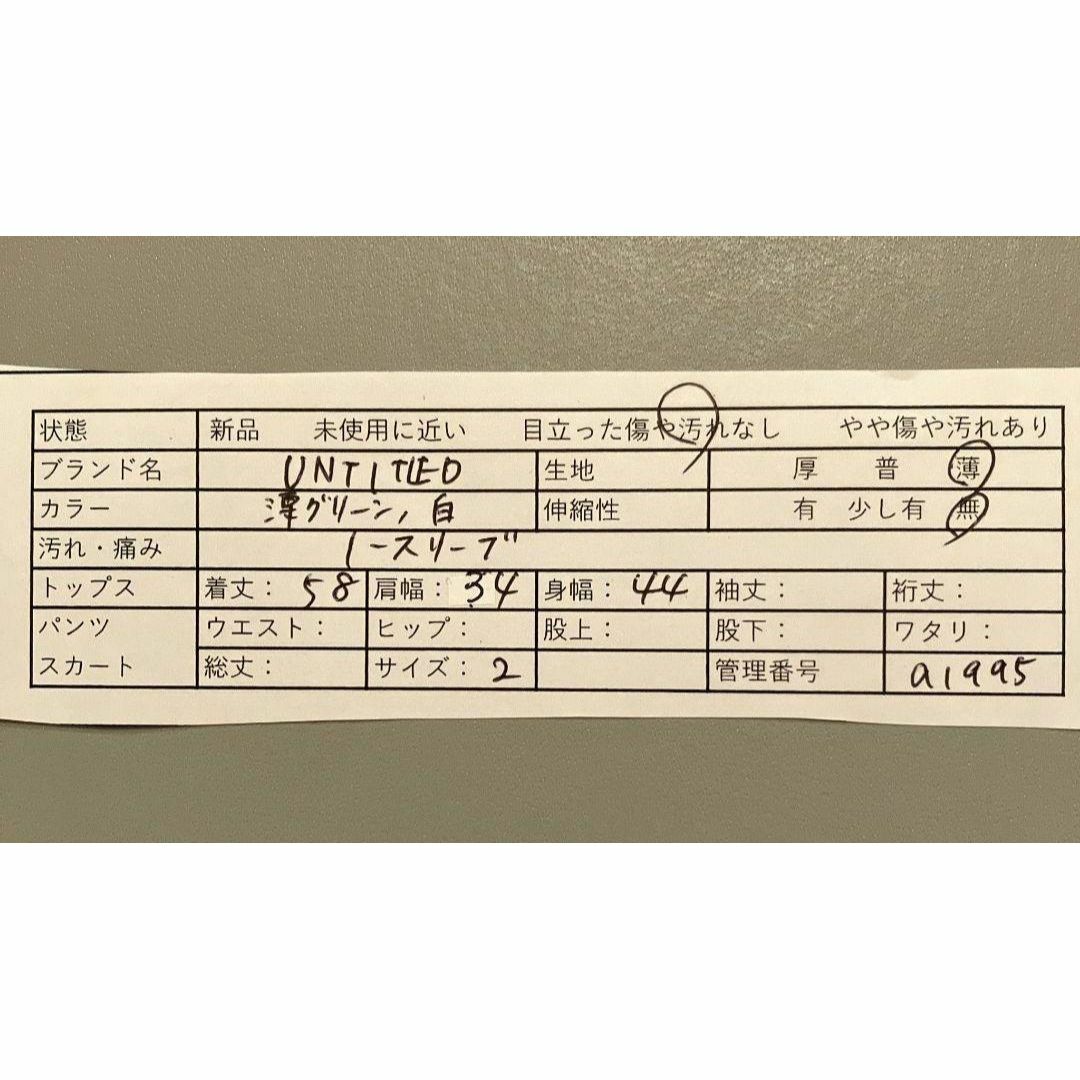 状態 新品 未使用に近い 目立った傷や汚れなし やや傷や汚れあり
ブランド名 UNTITLED 生地 厚 普 薄
カラー グリーン, 白 伸縮性 有 少し有 無
汚れ・痛み ノースリーブ
トップス 着丈: 58 肩幅: 34 身幅: 44 袖丈: 裄丈:
パンツ ウエスト: ヒップ: 股上: 股下: ワタリ:
スカート 総丈: サイズ: 2 管理番号 a1995